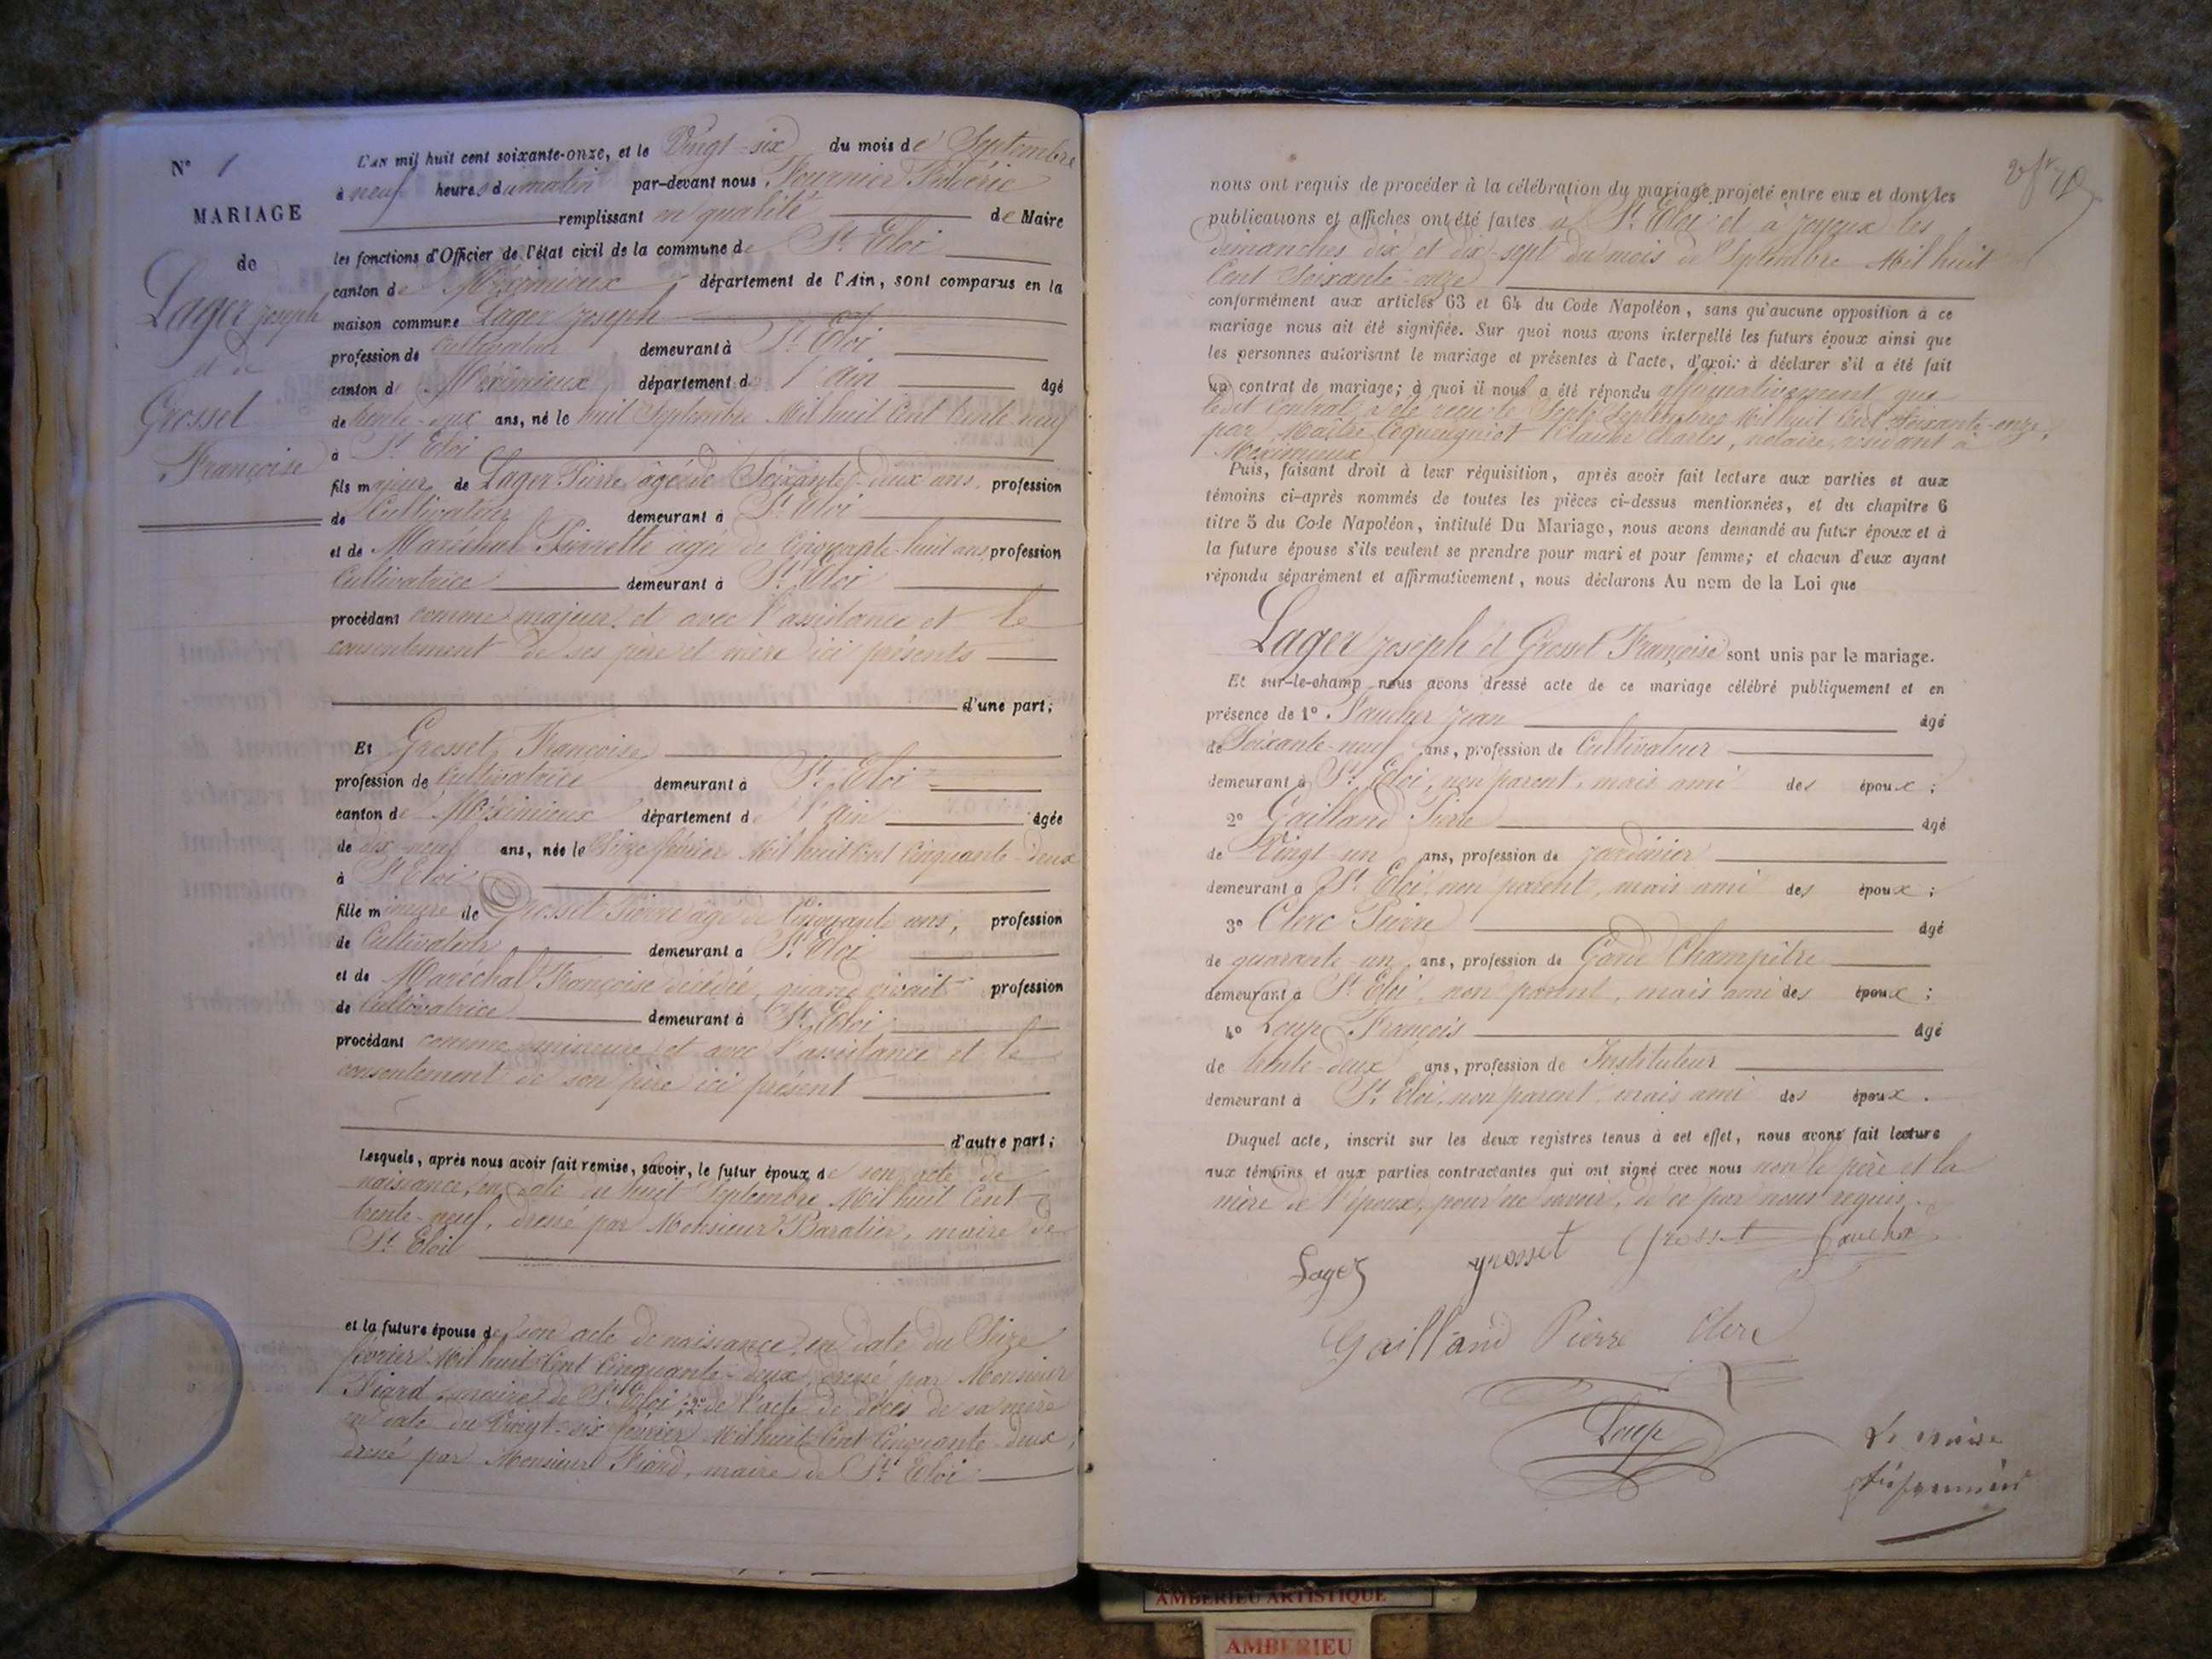 N° 1
MARIAGE
de
Lager Joseph
et de
Grosset
Françoise
L'AN mil huit cent soixante-onze, et le Vingt-six du mois de Septembre
à neuf heures du matin par-devant nous Fournier Frédéric
remplissant en qualité de Maire
les fonctions d'Officier de l'état civil de la commune de St. Eloi
canton de Méximieux département de l'Ain, sont comparus en la
maison commune Lager Joseph
profession de Cultivateur demeurant à St. Eloi
canton de Méximieux département de l'Ain âgé
de trente-deux ans, né le huit Septembre Mil huit Cent trente neuf
à St. Eloi
fils majeur de Lager Pierre âgé de Soixante-deux ans, profession
de Cultivateur demeurant à St. Eloi
et de Maréchal Pierrette âgée de Cinquante-huit ans profession
Cultivatrice demeurant à St. Eloi
procédant comme majeur et avec l'assistance et le
consentement de ses père et mère ici présents
d'une part;
Et Grosset Françoise
profession de Cultivatrice demeurant à St. Eloi
canton de Méximieux département de l'Ain âgée
de dix-neuf ans, née le Onze février Mil huit Cent Cinquante-deux
à St. Eloi
fille mineure de Grosset Pierre âgé de Cinquante ans, profession
de Cultivateur demeurant à St. Eloi
et de Maréchal Françoise décédée, quand vivait profession
de Cultivatrice demeurant à St. Eloi
procédant comme mineure et avec l'assistance et le
consentement de son père ici présent
d'autre part;
Lesquels, après nous avoir fait remise, savoir, le futur époux de son acte de
naissance, en date du huit Septembre Mil huit Cent
trente-neuf, dressé par Monsieur Baratier, maire de
St. Eloi
et la future épouse de son acte de naissance, en date du Onze
février Mil huit Cent Cinquante-deux, dressé par Monsieur
maire de St. Eloi; 2° de l'acte de décès de sa mère
en date du Vingt-six février Mil huit Cent Cinquante-deux,
dressé par Monsieur maire de St. Eloi
nous ont requis de procéder à la célébration du mariage projeté entre eux et dont les
publications et affiches ont été faites à St. Eloi et à Joyeux les
dimanches dix et dix-sept du mois de Septembre Mil huit
Cent Soixante-onze
conformément aux articles 63 et 64 du Code Napoléon, sans qu'aucune opposition à ce
mariage nous ait été signifiée. Sur quoi nous avons interpellé les futurs époux ainsi que
les personnes autorisant le mariage et présentes à l'acte, d'avoir à déclarer s'il a été fait
un contrat de mariage; à quoi il nous a été répondu affirmativement que
ledit Contrat a été reçu le Sept Septembre Mil huit Cent Soixante-onze,
par Maître Claude Charles, notaire, résidant à
Meximieux
Puis, faisant droit à leur réquisition, après avoir fait lecture aux parties et aux
témoins ci-après nommés de toutes les pièces ci-dessus mentionnées, et du chapitre 6
titre 5 du Code Napoléon, intitulé Du Mariage, nous avons demandé au futur époux et à
la future épouse s'ils veulent se prendre pour mari et pour femme; et chacun d'eux ayant
répondu séparément et affirmativement, nous déclarons Au nom de la Loi que
Lager Joseph et Grosset Françoise sont unis par le mariage.
Et sur-le-champ nous avons dressé acte de ce mariage célébré publiquement et en
présence de 1° Faucher Jean âgé
de Soixante-neuf ans, profession de Cultivateur
demeurant à St. Eloi, non parent, mais ami des époux;
2° Gailland Pierre âgé
de Vingt-un ans, profession de Jardinier
demeurant à St. Eloi, non parent, mais ami des époux;
3° Clerc Pierre âgé
de quarante-un ans, profession de Garde Champêtre
demeurant à St. Eloi, non parent, mais ami des époux;
4° Loup François âgé
de trente-deux ans, profession de Instituteur
demeurant à St. Eloi, non parent, mais ami des époux.
Duquel acte, inscrit sur les deux registres tenus à cet effet, nous avons fait lecture
aux témoins et aux parties contractantes qui ont signé avec nous non le père et la
mère de l'époux, pour ne savoir, de ce par nous requis.
Lager grosset Grosset faucher
Gailland Pierre Clerc
Loup
Le maire
AMBERIEU ARTISTIQUE
AMBERIEU